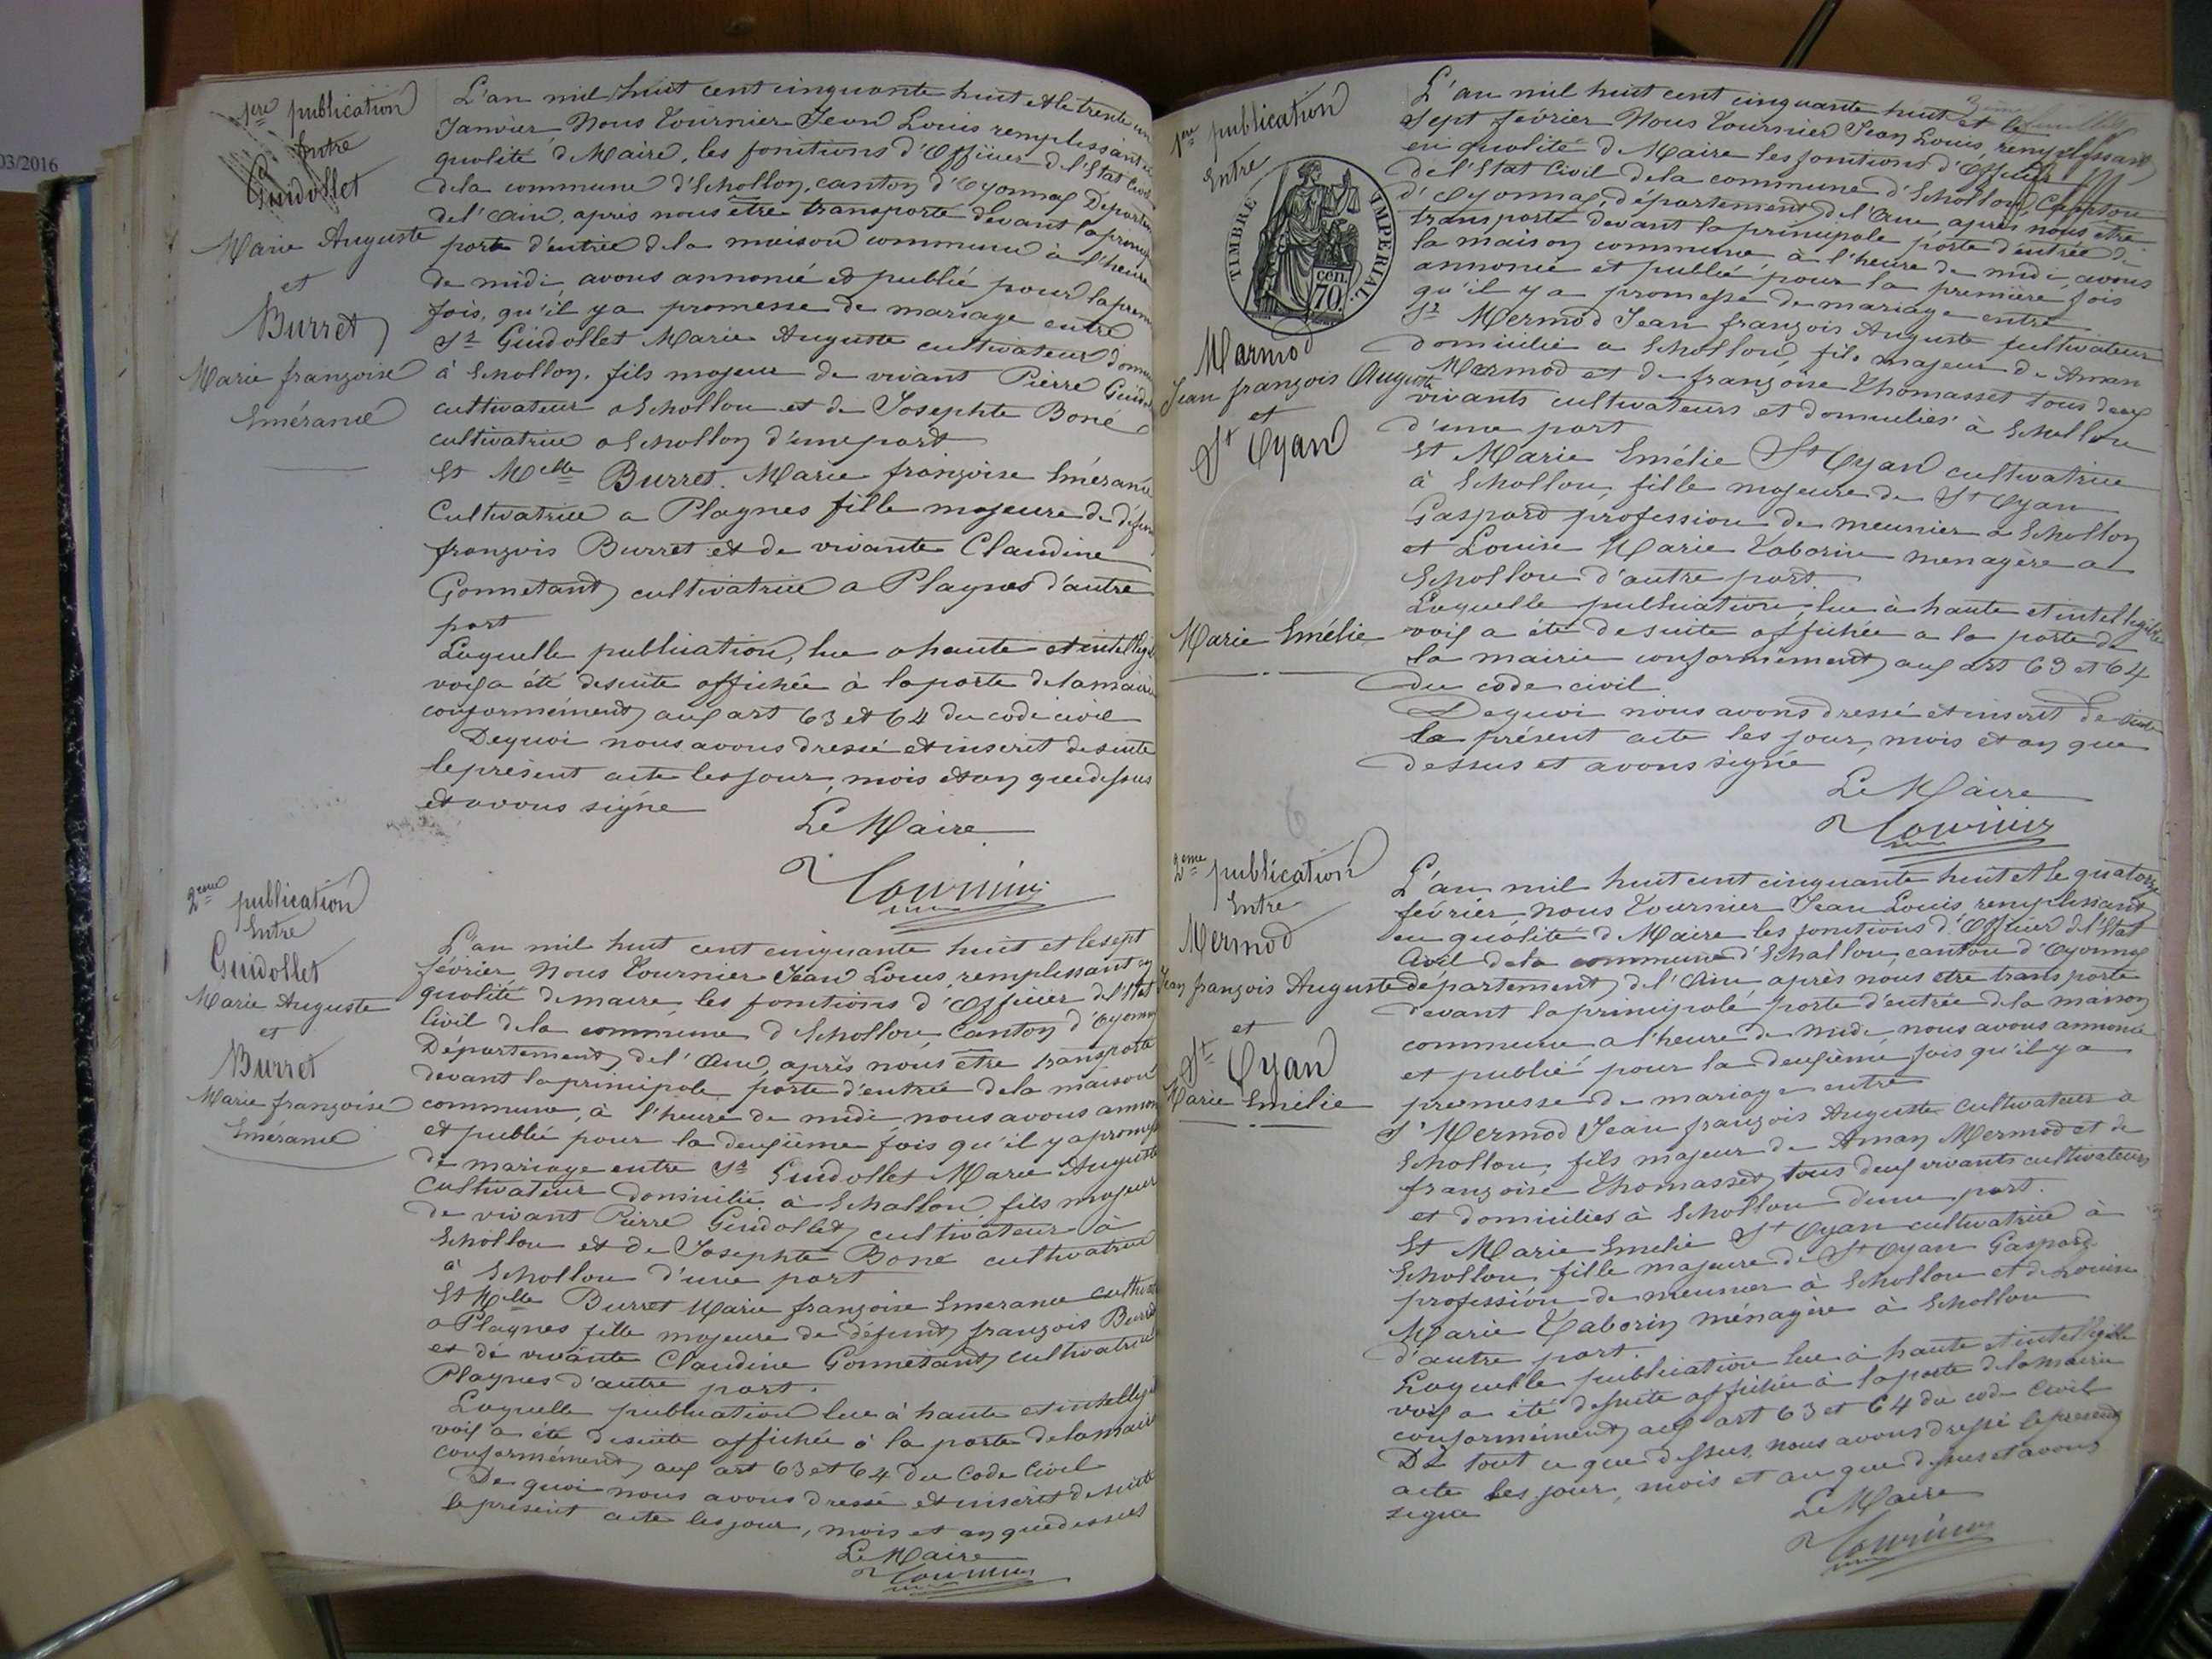 03/2016
1ere publication
Entre
Guidollet
Marie Auguste
et
Burret
Marie françoise
Emérance
L'an mil huit cent cinquante huit et le trente un
Janvier Nous Tournier Jean Louis remplissant en
qualité de Maire, les fonctions d'Officier de l'Etat Civil
de la commune d'Echallon, canton d'Oyonnax Départem
de l'Ain, après nous être transporté devant la princip
porte d'entrée de la maison commune à l'heure
de midi avons annoncé et publié pour la prem
fois, qu'il y a promesse de mariage entre
Sr Guidollet Marie Auguste cultivateur domi
à Echallon, fils majeur de vivant Pierre Guido
cultivateur a Echallon et de Josephte Boné
cultivatrice a Echallon d'une part
Et Melle Burret Marie françoise Emérance
Cultivatrice a Plagnes fille majeure de défun
françois Burret et de vivante Claudine
Gonnetant cultivatrice a Plagnes d'autre
part
Laquelle publication, lue a haute et intellig
voix a été desuite affichée à la porte de la mairie
conformément aux art 63 et 64 du code civil
De quoi nous avons dressé et inscrit desuite
le présent acte les jour, mois et an que dessus
et avons signé
Le Maire
Tournier
2eme publication
Entre
Guidollet
Marie Auguste
et
Burret
Marie françoise
Emérance
L'an mil huit cent cinquante huit et le sept
février Nous Tournier Jean Louis, remplissant en
qualité de maire, les fonctions d'Officier de l'Etat
Civil de la commune d'Echallon Canton d'Oyonn
Département de l'Ain, après nous être transporté
devant la principale porte d'entrée de la maison
commune, à l'heure de midi, nous avons annon
et publié pour la deuxième fois qu'il y a promesse
de mariage entre Sr Guidollet Marie Auguste
Cultivateur domicilié à Echallon fils majeur
de vivant Pierre Guidollet cultivateur à
Echallon et de Josephte Boné cultivatrice
à Echallon d'une part
Et Melle Burret Marie françoise Emerance cultiva
a Plagnes fille majeure de défunt françois Burret
et de vivante Claudine Gonnetant cultivatrice
Plagnes d'autre part.
Laquelle publication lue à haute et intellig
voix a été desuite affichée à la porte de la mairie
conformément aux art 63 et 64 du Code Civil
De quoi nous avons dressé et inscrit desuite
le présent acte les jour, mois et an que dessus
Le Maire
Tournier
1ere publication
Entre
TIMBRE IMPERIAL
cen.
70.
Marmod
Jean françois Auguste
et
St Oyan
Marie Emélie
L'an mil huit cent cinquante huit et le
Sept février Nous Tournier Jean Louis, remplissant
en qualité de Maire les fonctions d'Officier
de l'Etat Civil de la commune d'Echallon Canton
d'Oyonnax, département de l'Ain après nous être
transporté devant la principale porte d'entrée de
la maison commune, à l'heure de midi, avons
annoncé et publié pour la première fois
qu'il y a promesse de mariage entre
Sr Mermod Jean françois Auguste cultivateur
domicilié a Echallon, fils majeur de Aman
Mermod et de françoise Thomasset tous deux
vivants cultivateurs et domiciliés à Echallon
d'une part
Et Marie Emélie St Oyan cultivatrice
à Echallon, fille majeure de St Oyan
Gaspard profession de meunier a Echallon
et Louise Marie Taborin menagère a
Echallon d'autre part
Laquelle publication, lue à haute et intelligible
voix a été desuite affichée a la porte de
la mairie conformément aux art 63 et 64
du code civil
De quoi nous avons dressé et inscrit de suite
le présent acte les jour, mois et an que
dessus et avons signé
Le Maire
Tournier
6
2eme publication
Entre
Mermod
Jean françois Auguste
et
St Oyan
Marie Emélie
L'an mil huit cent cinquante huit et le quatorze
février, Nous Tournier Jean Louis remplissant
en qualité de Maire les fonctions d'Officier de l'Etat
Civil de la commune d'Echallon, canton d'Oyonnax
département de l'Ain, après nous être transporté
devant la principale porte d'entrée de la maison
commune a l'heure de midi nous avons annoncé
et publié pour la deuxième fois qu'il y a
promesse de mariage entre
Sr Mermod Jean françois Auguste Cultivateur à
Echallon, fils majeur de Aman Mermod et de
françoise Thomasset, tous deux vivants cultivateurs
et domiciliés à Echallon d'une part.
Et Marie Emélie St Oyan cultivatrice à
Echallon, fille majeure de St Oyan Gaspard
profession de meunier à Echallon et de Louise
Marie Taborin ménagère à Echallon
d'autre part
Laquelle publication lue à haute et intelligible
voix a été desuite affichée à la porte de la mairie
conformément aux art 63 et 64 du code Civil
De tout ce que dessus, nous avons dressé le présent
acte les jour, mois et an que dessus et avons
signé
Le Maire
Tournier